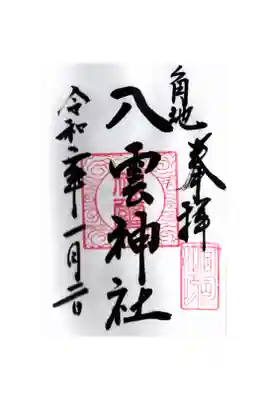 角地
奉拝
八雲神社
令和二年一月二日